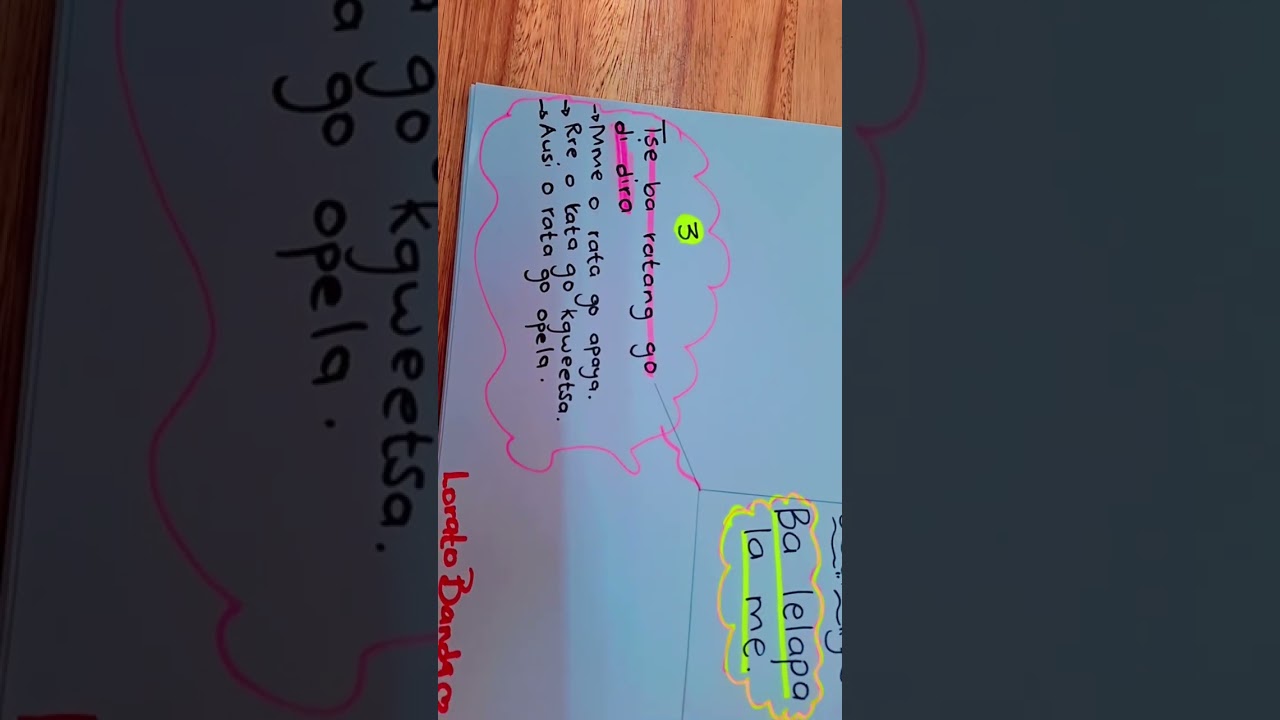 3
Tse ba ratang go
di dira
→ Mme o rata go apaya.
→ Rre o rata go kgweetsa.
→ Ausi o rata go opela.
Ba lelapa
la me.
Lorato Banda
go kgweetsa.
go opela.